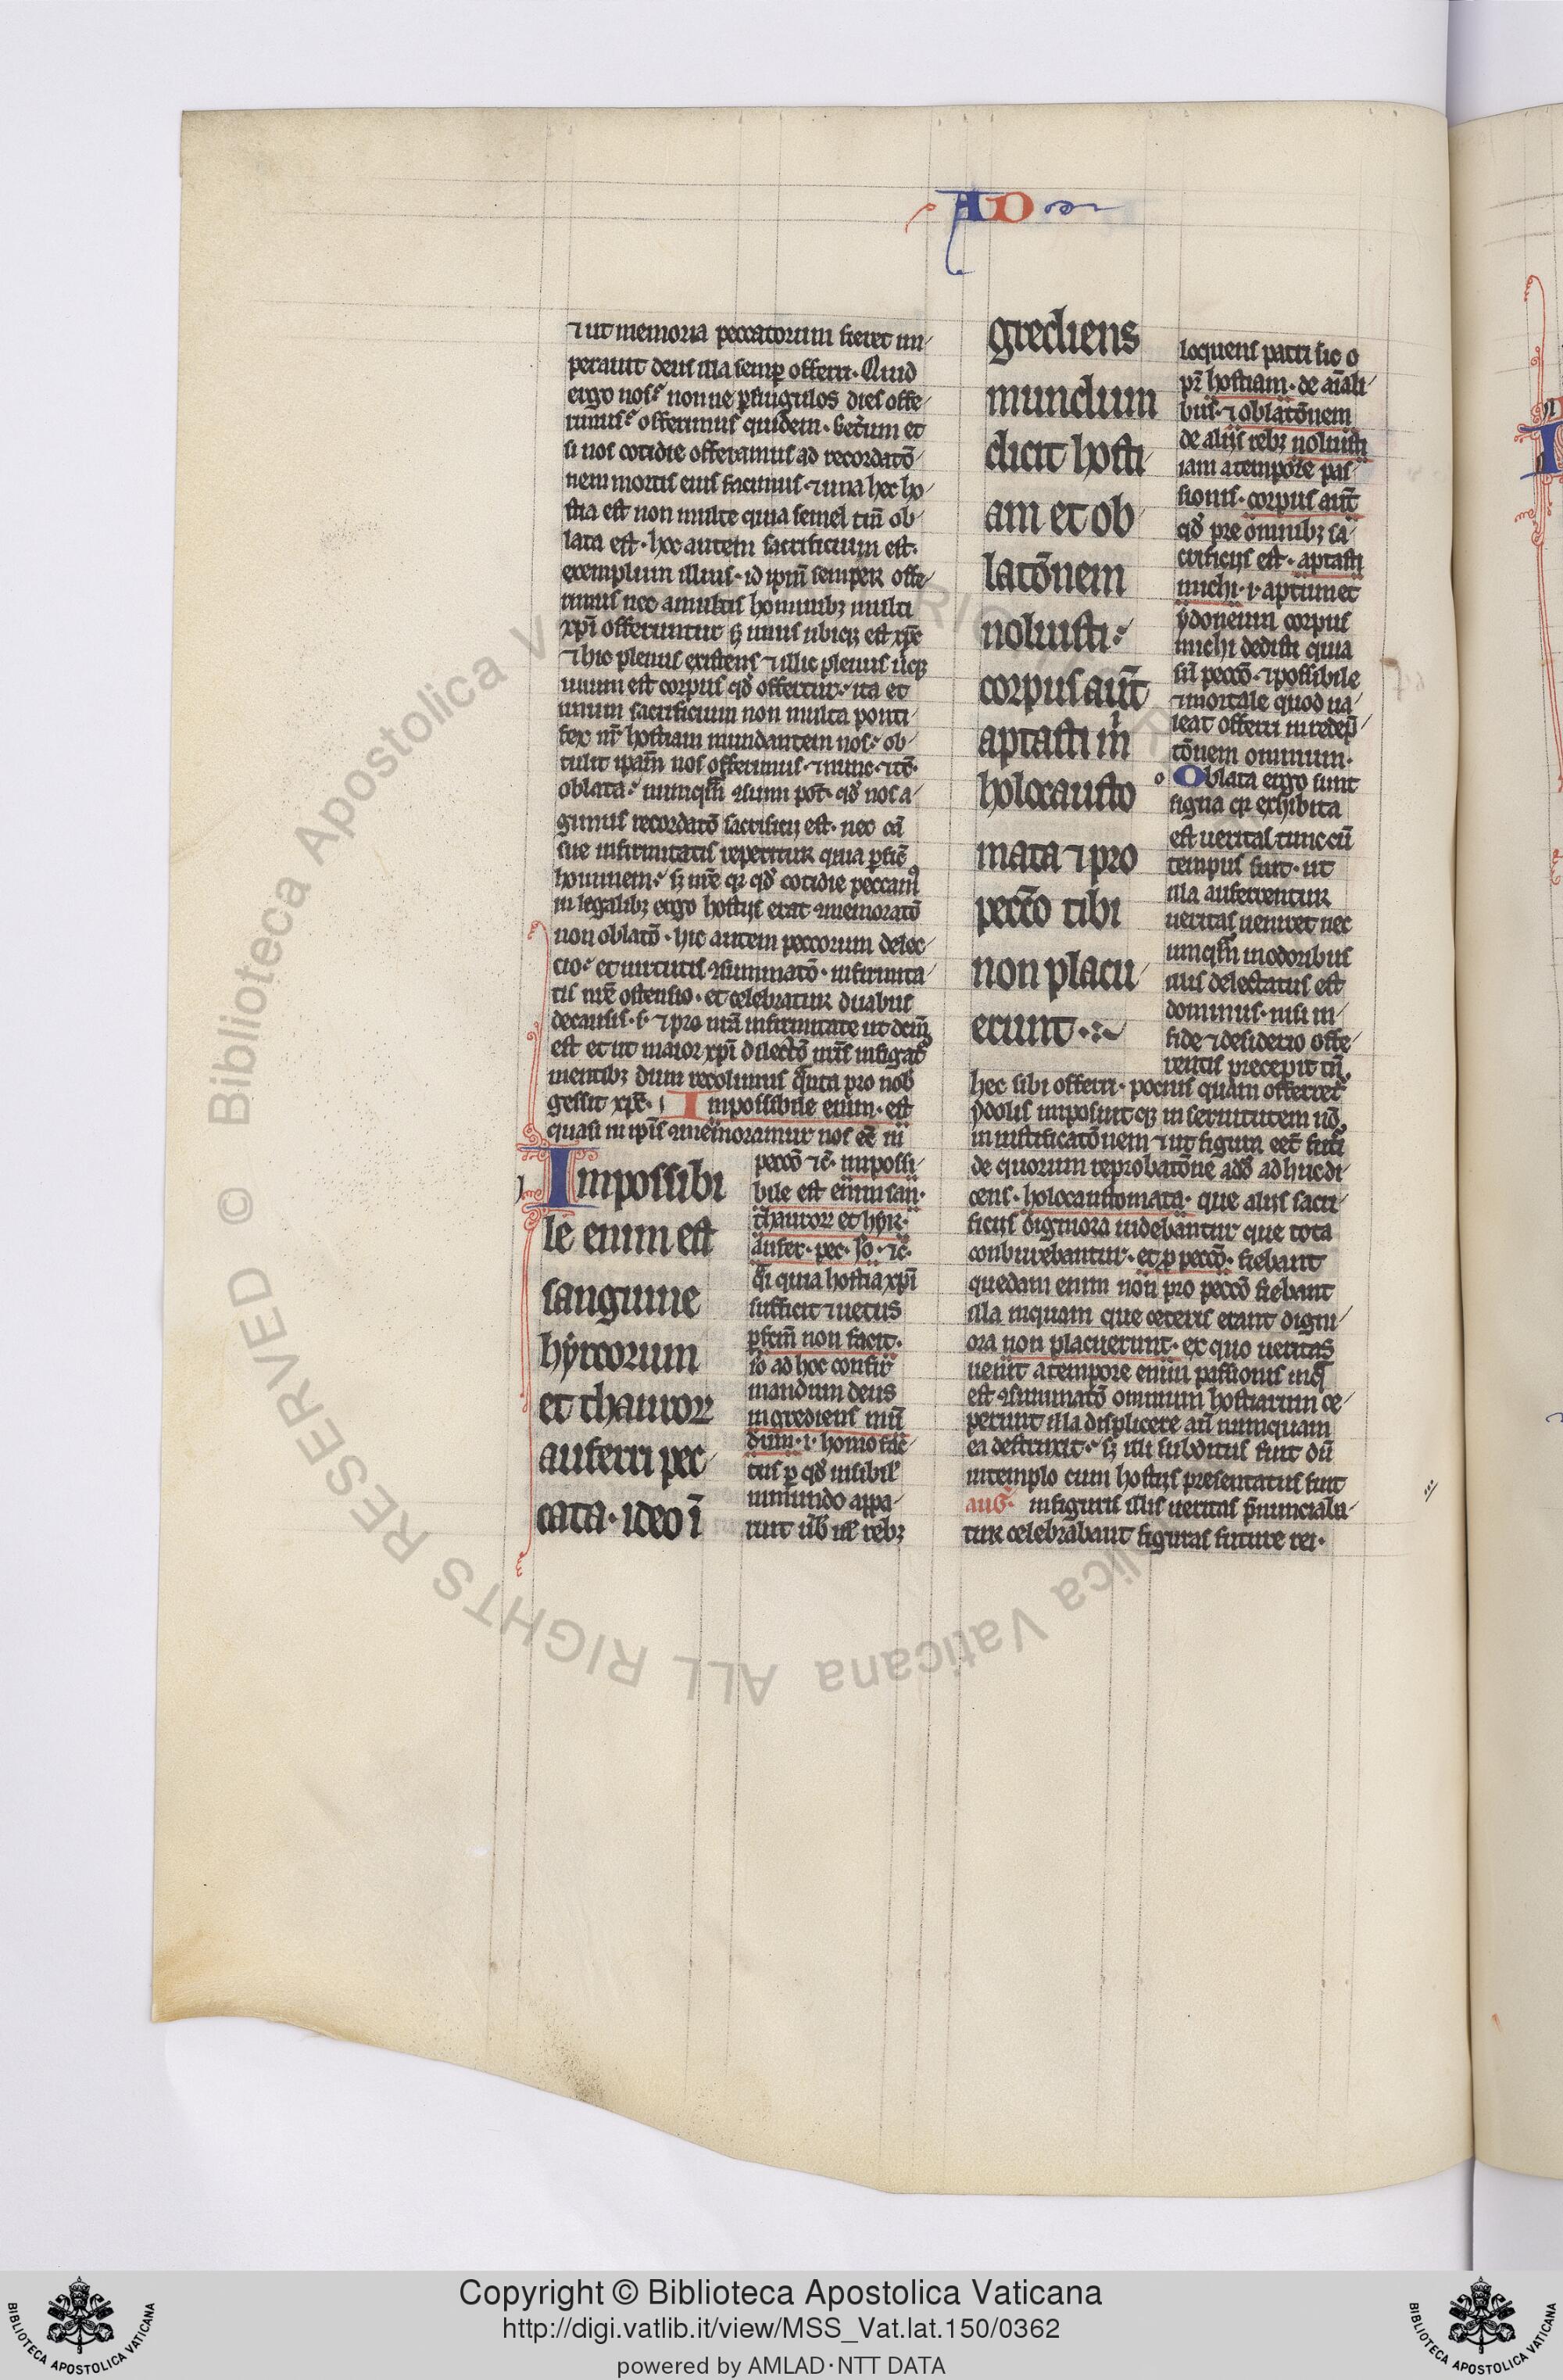 AD
⁊ ut memoria peccatorum fieret im
perauit deus illa semp̱ offerri. Quid
ergo nos? nonne ꝑ singulos dies offe
rimus? offerimus quidem. secum et
si nos cotidie offeramus ad recordatō
nem mortis eius facimus ⁊ una hec ho
stia est non multe quia semel tm̄ ob
lata est. hoc autem sacrificium est.
exemplum illius. id ip̄m semper offe
rimus nec a multis hominibꝫ multi
xp̄i offeruntur sꝫ unus ubiqꝫ est xp̄c
⁊ hic plenus existens ⁊ illic plenus
unum est corpus qd̓ offertur. ita et
unum sacrificium non multa ponti
fex nr̄ hostiam mundantem nos ob
tulit ipam̄ nos offerimus ⁊ nunc
oblata numqͣm ꝯsumi pot̄. qd̓ nos a
gimus recordatō sacrificij est. nec cā
sue infirmitatis repetitur quia ꝑfic̄
hominem sꝫ nr̄e qꝛ qd̓ cotidie peccam᷒
in legalibꝫ ergo hostijs erat ꝯmemoratō
non oblatō. hic autem peccorum delec
cio et uirtutis ꝯsummatō. infirmita
tis nr̄e ostensio. et celebratur duabus
de causis. s. ⁊ pro nr̄a infirmitate ut dcm̄
est et ut maior xp̄i dilectō nr̄is infigat᷑
mentibꝫ dum recolimus qͣnta pro nob̄
gessit xp̄c. Impossibile enim. est
quasi in ip̄is ꝯmemoramur nos eē in
Impossibi
le enim est
sanguine
hyrcorum
et thauroꝝ
auferri pec
cata. ideo ī
peccō ⁊c̄. impossi
bile est enim san.
thauroꝝ et hyr.
aufer. pec. Io. ⁊c̄.
qͣi quia hostia xp̄i
sufficit ⁊ uetus
ꝑfcm̄ non facit.
io ad hoc confir
mandum deus
ingrediens mū
dum. i. homo fac̄
tus ꝑ qd̓ inisibil̓
in mundo appa
ruit ul̓ rebꝫ
grediens
mundum
dicit hosti
am et ob
latōnem
noluisti
corpus aut̄
aptasti m̄
holocausto
mata ⁊ pro
peccō tibi
non placu
erunt.
loquens patri sic o
pr̄ hostiam. de aīali
bus. ⁊ oblatōnem
de alijs rebꝫ noluisti
iam a tempore pas
sionis. corpus aut̄
qd̓ pre omnibꝫ sa
crificijs est. aptasti
michi. i. aptum et
ydoneum corpus
michi dedisti quia
sn̄ peccō. ⁊ possibile
⁊ mortale quod ua
leat offerri in redēp
tōnem omnium.
Oblata ergo sunt
signa qꝛ exhibita
est ueritas tunc cū
tempus fuit. ut
illa auferrentur
ueritas ueniret nec
umqͣm in odoribus
illis delectatus est
dominus. nisi in
fide ⁊ desiderio offe
rentis precepit tn̄
hec sibi offerri. pocius quam offerret᷑
ydolis imposuitqꝫ in seruitutem nō
in iustificatōnem ⁊ ut figura eēt futi
de quorum reprobatōne ad huc di
cens. holocaustomata. que alijs sacri
ficijs digniora uidebantur que tota
conburebantur. et ꝓ peccō. fiebant
quedam enim non pro peccō fiebant
illa inquam que ceteris erant digni
ora non placuerunt. ex quo ueritas
uenit a tempore enim passionis inqͣ
est ꝯsummatō omnium hostiarum ce
perunt illa displicere an̄ numquam
ea destruxit. sꝫ illi subditus fuit dū
in templo cum hostijs presentatus fuit
aug̓. in figuris illis ueritas p̄nunciaba
tur celebrabant figuras future rei.
Copyright © Biblioteca Apostolica Vaticana
http://digi.vatlib.it/view/MSS_Vat.lat.150/0362
powered by AMLAD·NTT DATA
BIBLIOTECA APOSTOLICA VATICANA
BIBLIOTECA APOSTOLICA VATICANA